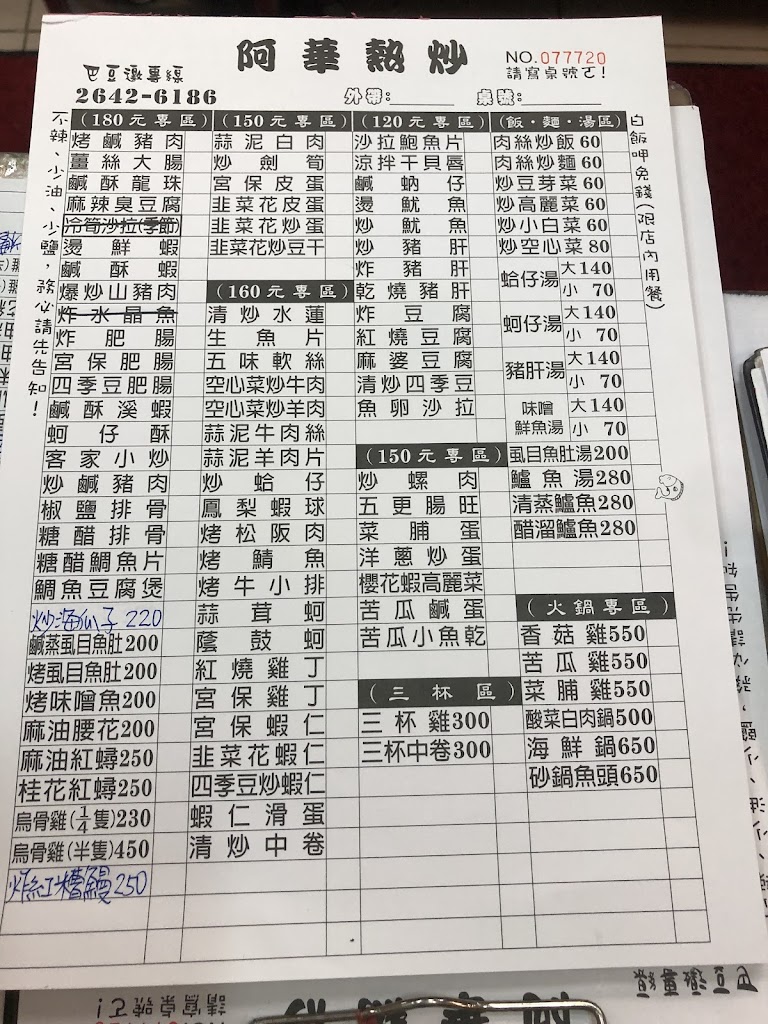 阿華熱炒
NO.077720
請寫桌號ㄛ!
巴豆邀專線
2642-6186
外帶:
桌號:
不辣、少油、少鹽,務必請先告知!
白飯呷免錢(限店內用餐)
(180元專區)
烤鹹豬肉
薑絲大腸
鹹酥龍珠
麻辣臭豆腐
冷筍沙拉(季節)
燙鮮蝦
鹹酥蝦
爆炒山豬肉
炸水晶魚
炸肥腸
宮保肥腸
四季豆肥腸
鹹酥溪蝦
蚵仔酥
客家小炒
炒鹹豬肉
椒鹽排骨
糖醋排骨
糖醋鯛魚片
鯛魚豆腐煲
炒海瓜子 220
鹹蒸虱目魚肚200
烤虱目魚肚200
烤味噌魚200
麻油腰花200
麻油紅蟳250
桂花紅蟳250
烏骨雞(1/4隻)230
烏骨雞(半隻)450
炸紅糟鰻250
(150元專區)
蒜泥白肉
炒劍筍
宮保皮蛋
韭菜花皮蛋
韭菜花炒蛋
韭菜花炒豆干
(160元專區)
清炒水蓮
生魚片
五味軟絲
空心菜炒牛肉
空心菜炒羊肉
蒜泥牛肉絲
蒜泥羊肉片
炒蛤仔
鳳梨蝦球
烤松阪肉
烤鯖魚
烤牛小排
蒜茸蚵
蔭鼓蚵
紅燒雞丁
宮保雞丁
宮保蝦仁
韭菜花蝦仁
四季豆炒蝦仁
蝦仁滑蛋
清炒中卷
(120元專區)
沙拉鮑魚片
涼拌干貝唇
鹹蚋仔
燙魷魚
炒魷魚
炒豬肝
炸豬肝
乾燒豬肝
炸豆腐
紅燒豆腐
麻婆豆腐
清炒四季豆
魚卵沙拉
(150元專區)
炒螺肉
五更腸旺
菜脯蛋
洋蔥炒蛋
櫻花蝦高麗菜
苦瓜鹹蛋
苦瓜小魚乾
(三杯區)
三杯雞300
三杯中卷300
(飯·麵·湯區)
肉絲炒飯60
肉絲炒麵60
炒豆芽菜60
炒高麗菜60
炒小白菜60
炒空心菜80
蛤仔湯 大140 小70
蚵仔湯 大140 小70
豬肝湯 大140 小70
味噌鮮魚湯 大140 小70
虱目魚肚湯200
鱸魚湯280
清蒸鱸魚280
醋溜鱸魚280
(火鍋專區)
香菇雞550
苦瓜雞550
菜脯雞550
酸菜白肉鍋500
海鮮鍋650
砂鍋魚頭650